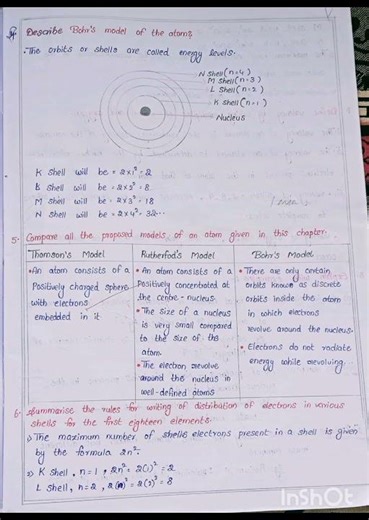 Describe Bohr's model of the atom?
• The orbits or shells are called energy levels.
N shell (n=4)
M shell (n=3)
L shell (n=2)
K shell (n=1)
Nucleus
K shell will be = 2x1² = 2
shell will be = 2x2² = 8
M shell will be = 2x3² = 18
N shell will be = 2x4² = 32
5. Compare all the proposed models of an atom given in this chapter.
Thomson's Model
• An atom consists of a
Positively charged sphere
with electrons
embedded in it
Rutherfod's Model
• An atom consists of a
Positively concentrated at
the centre - nucleus.
• The size of a nucleus
is very small compared
to the size of the
atom.
• The electron revolve
around the nucleus in
well-defined atoms
Bohr's Model
• There are only certain
orbits known as discrete
orbits inside the atom
in which electrons
revolve around the nucleus.
• Electrons do not radiate
energy while revolving.
6. Summarise the rules for writing of distribution of electrons in various
shells for the first eighteen elements.
1) The maximum number of shells electrons present in a shell is given
by the formula 2n².
2) K shell, n=1, 2n² = 2(1)² = 2
L shell, n=2, = 2(2)² = 8
InShOt